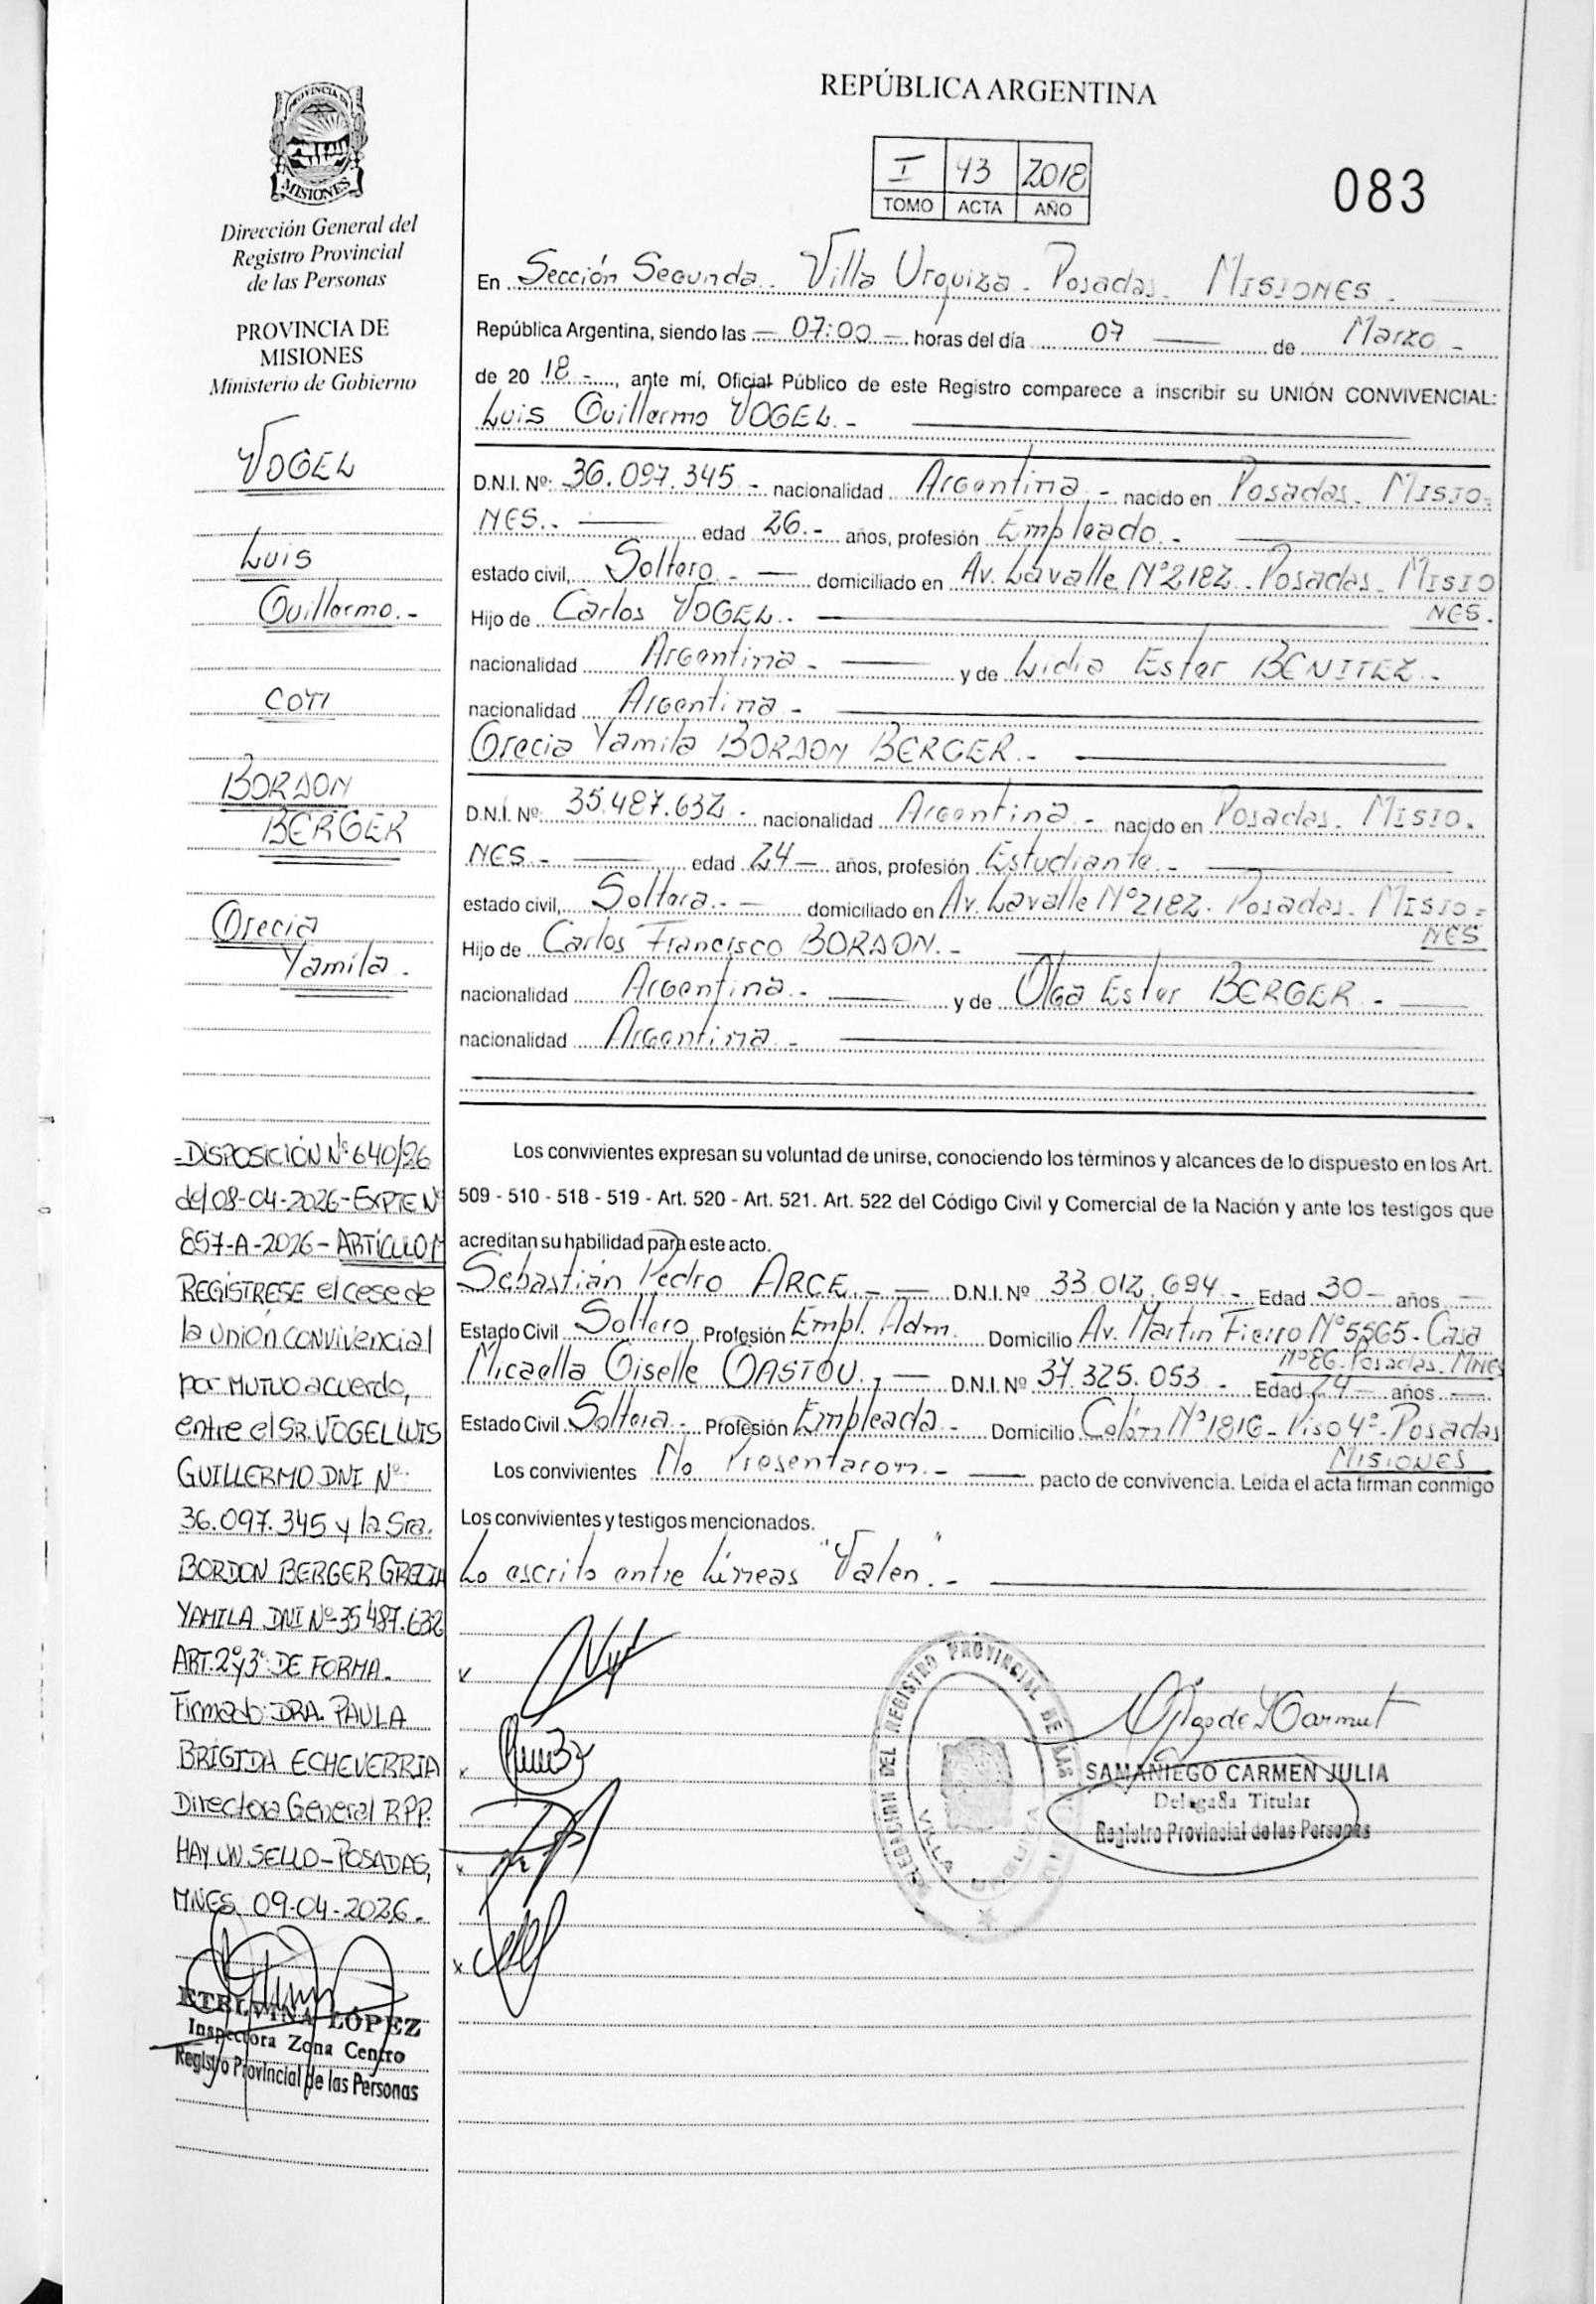 REPÚBLICA ARGENTINA
I 43 2018
TOMO ACTA AÑO
083
PROVINCIA DE
MISIONES
Dirección General del
Registro Provincial
de las Personas
PROVINCIA DE
MISIONES
Ministerio de Gobierno
VOGEL
Luis
Guillermo.-
CON
BORDON
BERGER
Grecia
Yamila.
-DISPOSICIÓN Nº 640/26
del 08-04-2026-EXPTE Nº
857-A-2026-ARTÍCULO 1º
REGISTRESE el cese de
la UNIÓN CONVIVENCIAL
por MUTUO acuerdo,
entre el SR. VOGEL LUIS
GUILLERMO DNI Nº.
36.097.345 y la Sra.
BORDON BERGER GRECIA
YAMILA DNI Nº 35.487.632
ART. 2º y 3º DE FORMA.
Firmado: DRA. PAULA
BRÍGIDA ECHEVERRIA
Directora General R.P.P.
HAY UN SELLO-POSADAS,
MNES. 09-04-2026.-
ETELVINA LÓPEZ
Inspectora Zona Centro
Registro Provincial de las Personas
En Sección Segunda. Villa Urquiza - Posadas. MISIONES.-
República Argentina, siendo las - 07:00 - horas del día 07 de Marzo -
de 20 18 -, ante mí, Oficial Público de este Registro comparece a inscribir su UNIÓN CONVIVENCIAL:
Luis Guillermo VOGEL.-
D.N.I. Nº: 36.097.345 - nacionalidad Argentina.- nacido en Posadas. MISIO-
NES.- edad 26.- años, profesión Empleado.-
estado civil, Soltero.- domiciliado en Av. Lavalle Nº 2182. Posadas. MISIO
NES.
Hijo de Carlos VOGEL.-
nacionalidad Argentina.- y de Lidia Ester BENITEZ.-
nacionalidad Argentina.-
Grecia Yamila BORDON BERGER.-
D.N.I. Nº: 35.487.632.- nacionalidad Argentina.- nacido en Posadas. MISIO-
NES.- edad 24- años, profesión Estudiante.-
estado civil, Soltera.- domiciliado en Av. Lavalle Nº 2182. Posadas. MISIO-
NES
Hijo de Carlos Francisco BORDON.-
nacionalidad Argentina.- y de Olga Ester BERGER.-
nacionalidad Argentina.-
Los convivientes expresan su voluntad de unirse, conociendo los términos y alcances de lo dispuesto en los Art.
509 - 510 - 518 - 519 - Art. 520 - Art. 521. Art. 522 del Código Civil y Comercial de la Nación y ante los testigos que
acreditan su habilidad para este acto.
Sebastián Pedro ARCE.- D.N.I. Nº 33.012.694.- Edad 30- años
Estado Civil Soltero Profesión Empl. Adm. Domicilio Av. Martin Fierro Nº 5565- Casa
Nº 86- Posadas- MNES
Micaella Giselle GASTOU.- D.N.I. Nº 37.325.053 - Edad 24- años
Estado Civil Soltera.- Profesión Empleada.- Domicilio Colón Nº 1816- Piso 4º- Posadas
MISIONES
Los convivientes No Presentaron.- pacto de convivencia. Leída el acta firman conmigo
Los convivientes y testigos mencionados.
Lo escrito entre Líneas "Valen".-
DELEGACION DEL REGISTRO PROVINCIAL DE LAS
VILLA URQUIZA
SAMANIEGO CARMEN JULIA
Delegada Titular
Registro Provincial de las Personas